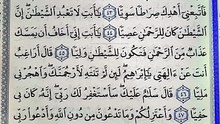 فَٱتَّبِعْنِىٓ أَهْدِكَ صِرَٰطًا سَوِيًّا ٤٣ يَٰٓأَبَتِ لَا تَعْبُدِ ٱلشَّيْطَٰنَ إِنَّ
ٱلشَّيْطَٰنَ كَانَ لِلرَّحْمَٰنِ عَصِيًّا ٤٤ يَٰٓأَبَتِ إِنِّىٓ أَخَافُ أَن يَمَسَّكَ
عَذَابٌ مِّنَ ٱلرَّحْمَٰنِ فَتَكُونَ لِلشَّيْطَٰنِ وَلِيًّا ٤٥ قَالَ أَرَاغِبٌ
أَنتَ عَنْ ءَالِهَتِى يَٰٓإِبْرَٰهِيمُ لَئِن لَّمْ تَنتَهِ لَأَرْجُمَنَّكَ وَٱهْجُرْنِى
مَلِيًّا ٤٦ قَالَ سَلَٰمٌ عَلَيْكَ سَأَسْتَغْفِرُ لَكَ رَبِّىٓ إِنَّهُۥ كَانَ بِى
حَفِيًّا ٤٧ وَأَعْتَزِلُكُمْ وَمَا تَدْعُونَ مِن دُونِ ٱللَّهِ وَأَدْعُوا۟ رَبِّى